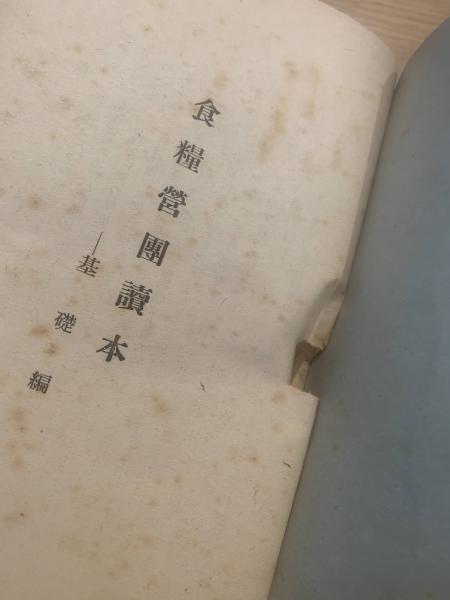 食糧營團讀本
—基礎編